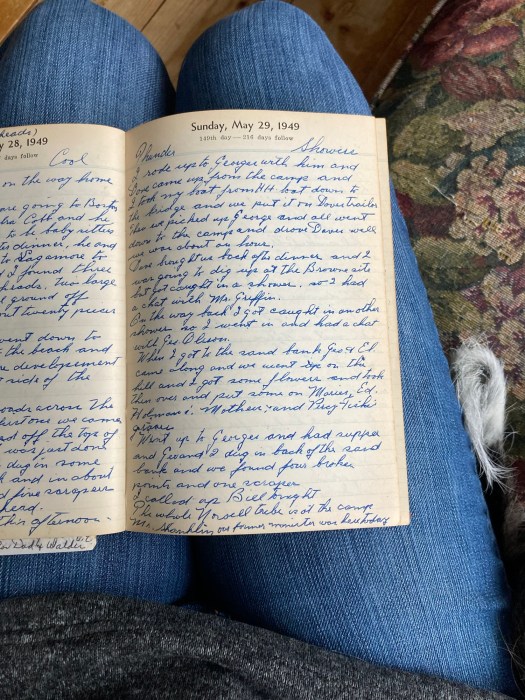 heads)
y 28, 1949
days follow
Cool
on the way home
are going to Boston
Cobb and he
to be baby sitters
dinner, he and
to Sagamore to
I found three
heads. two large
ground off
out twenty pieces
went down to
the beach and
developement
side of the
roads across the
we came
off the top of
was just done
dig in some
and in about
five scrapers
head.
this afternoon.
Dad & Walder
Sunday, May 29, 1949
149th day—216 days follow
Thunder Showers
I rode up to Georges with him and
Dave came up from the camp and
I took my boat from HH. boat down to
the bridge and we put it on Daves trailer
then we picked up George and all went
down to the camp and drove Daves well
we was about an hour.
Dave brought us back after dinner and I
was going to dig up at the Brown site
but got caught in a shower. so I had
a chat with Mr. Griffin.
On the way back I got caught in another
shower so I went in and had a chat
with Geo Olsson.
When I got to the sand bank Geo & Ed.
came along and we went up on the
hill and I got some flowers and took
them over and put some on Maries, Ed.
Holmans. Mothers and
graves
Went up to Georges and had supper
and George & I dug in back of the sand
bank and we found four broken
points and one scraper
I called up Bill Wright
The whole Norvell tribe is at the camp
Mr. Shanklin our former minister was here today